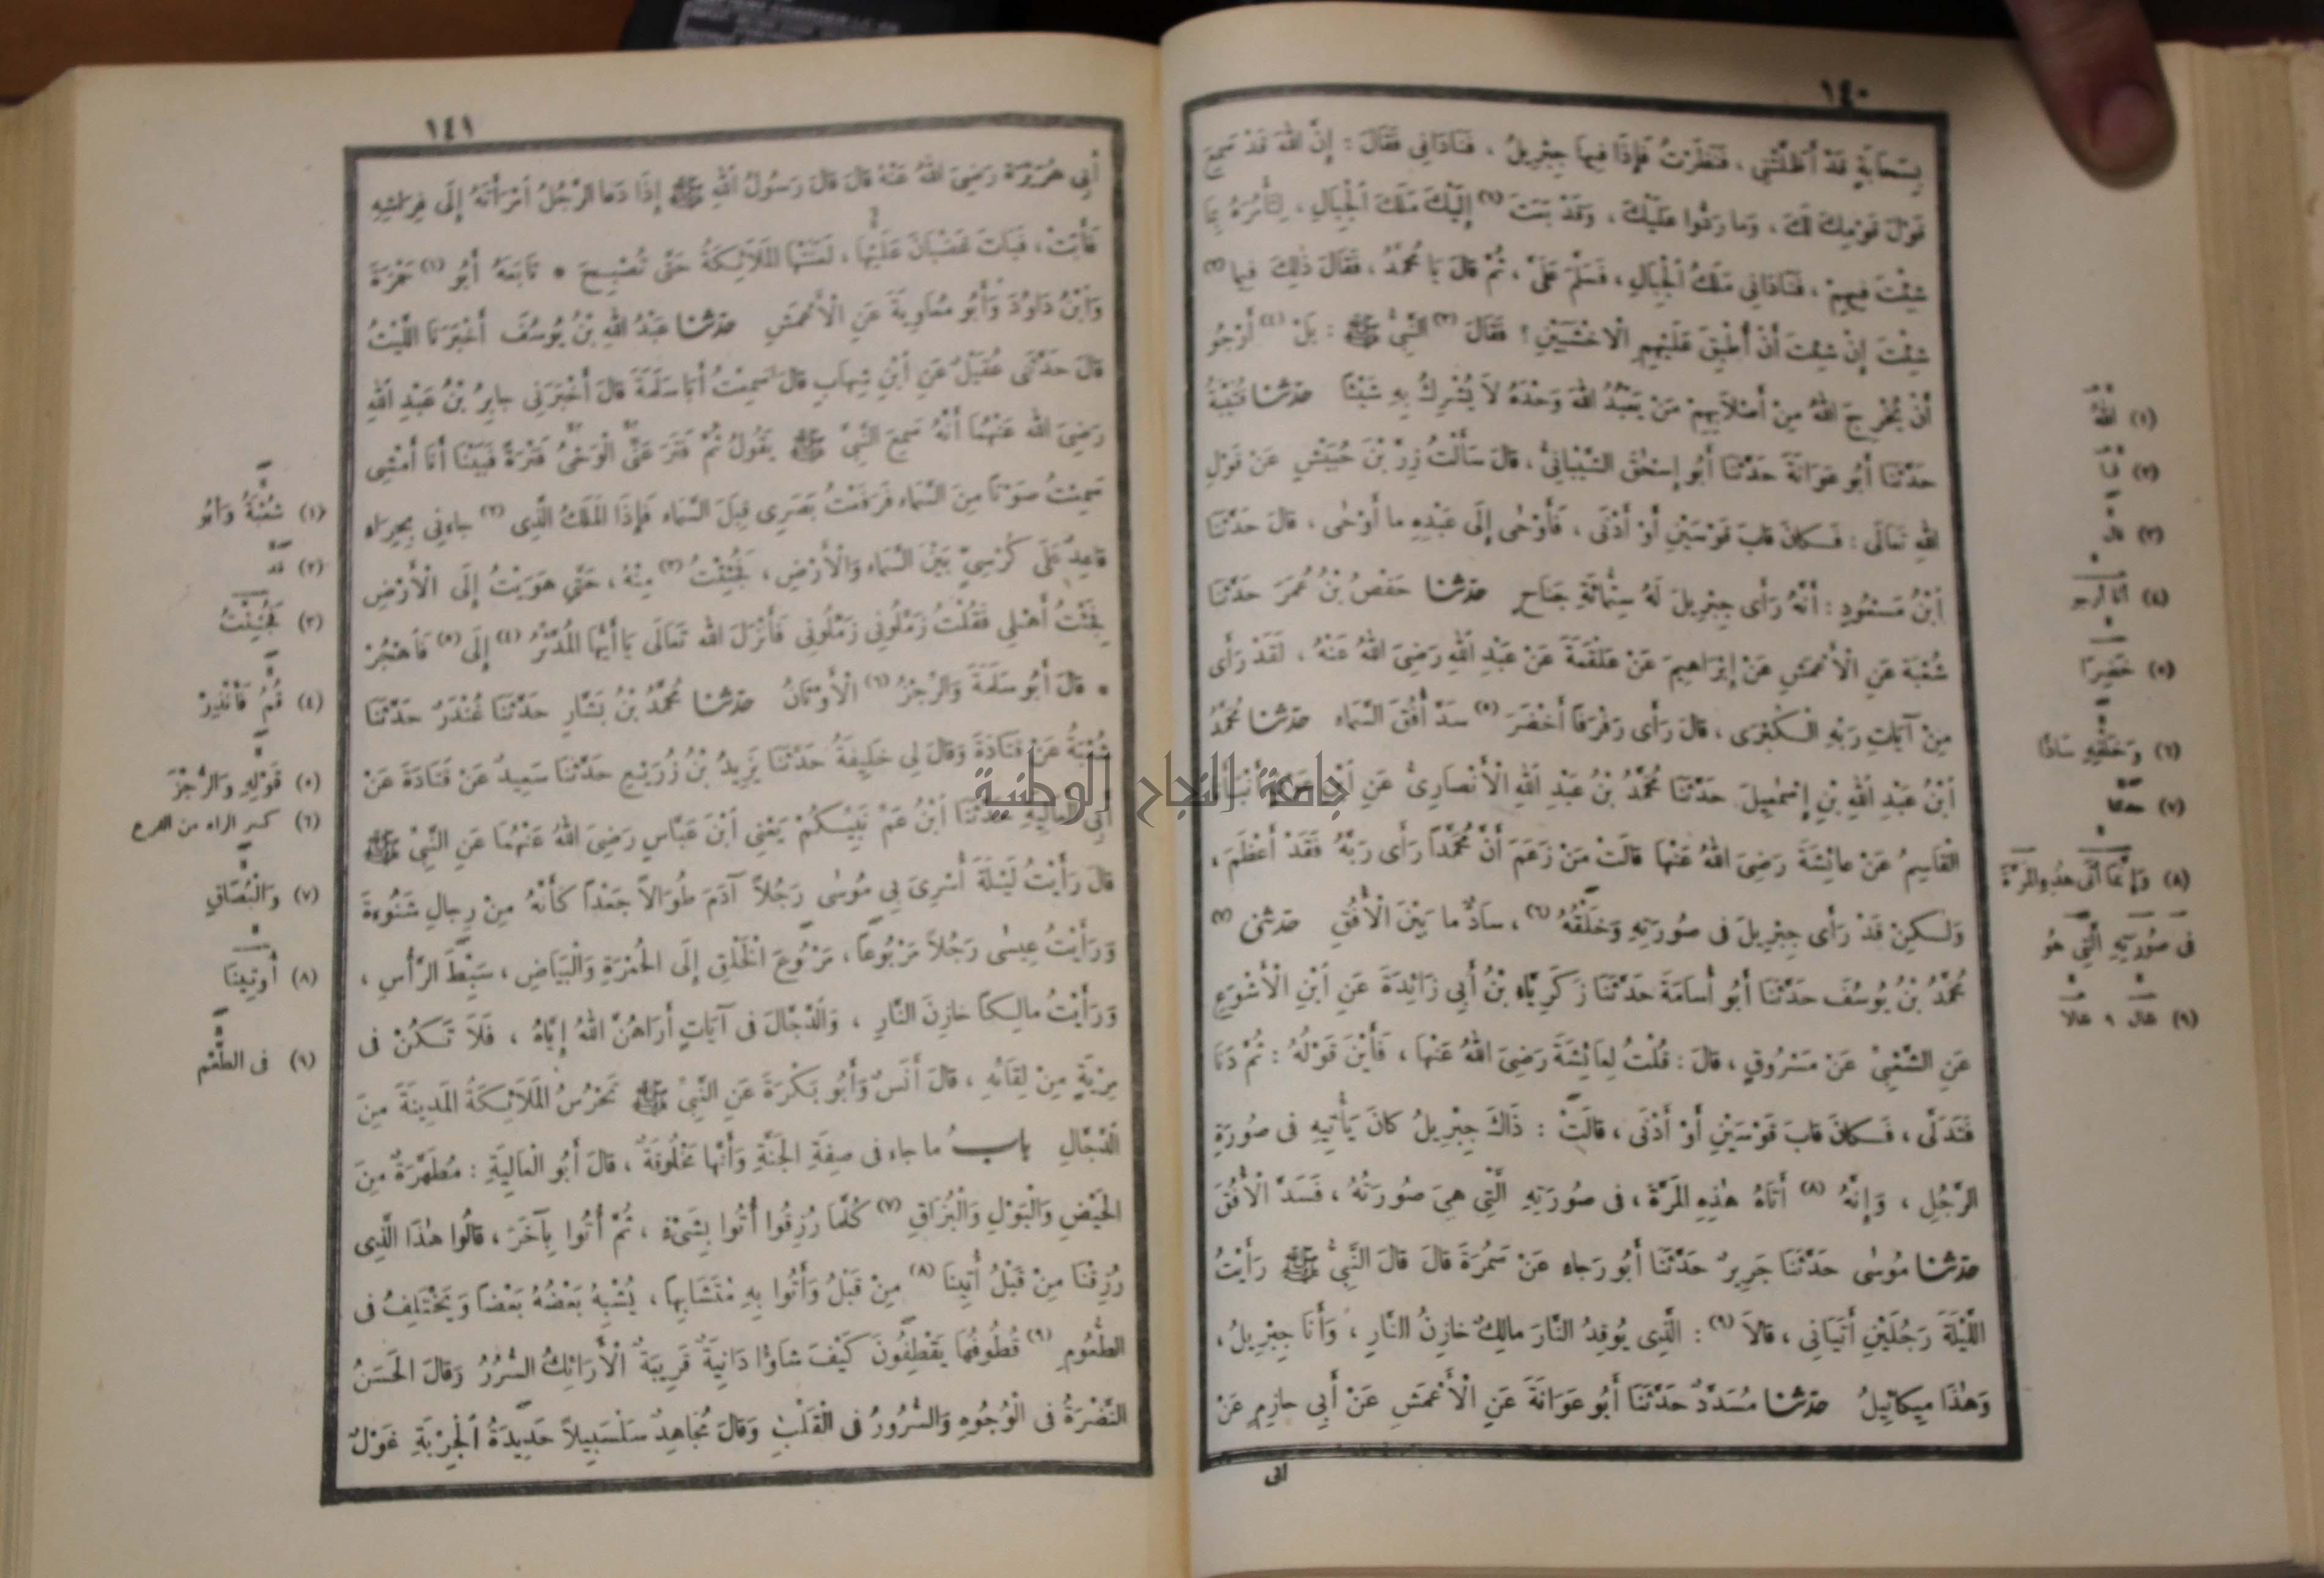 ١٤٠
بِسَحَابَةٍ قَدْ أَظَلَّتْنِي ، فَنَظَرْتُ فَإِذَا فِيهَا جِبْرِيلُ ، فَنَادَانِي فَقَالَ : إِنَّ اللهَ قَدْ سَمِعَ
قَوْلَ قَوْمِكَ لَكَ ، وَما رَدُّوا عَلَيْكَ ، وَقَدْ بَعَثَ (١) إِلَيْكَ مَلَكَ الْجِبَالِ ، لِتَأْمُرَهُ بِمَا
شِئْتَ فِيهِمْ ، فَنَادَانِي مَلَكُ الْجِبَالِ ، فَسَلَّمَ عَلَيَّ ، ثُمَّ قالَ يَا مُحَمَّدُ ، فَقَالَ ذٰلِكَ فِيما (٢)
شِئْتَ إِنْ شِئْتَ أَنْ أُطْبِقَ عَلَيْهِمِ الْأَخْشَبَيْنِ ؟ فَقَالَ (٣) النَّبِيُّ ﷺ : بَلْ (٤) أَرْجُو
أَنْ يُخْرِجَ اللهُ مِنْ أَصْلَابِهِمْ مَنْ يَعْبُدُ اللهَ وَحْدَهُ لاَ يُشْرِكُ بِهِ شَيْئًا حدثنا قُتَيْبَةُ
حَدَّثَنَا أَبُو عَوَانَةَ حَدَّثَنَا أَبُو إِسْحٰقَ الشَّيْبَانِيُّ ، قالَ سَأَلْتُ زِرَّ بْنَ حُبَيْشٍ عَنْ قَوْلِ
اللهِ تَعَالَى : فَكانَ قَابَ قَوْسَيْنِ أَوْ أَدْنَى ، فَأَوْحٰى إِلَى عَبْدِهِ ما أَوْحٰى ، قالَ حَدَّثَنَا
ابْنُ مَسْعُودٍ : أَنَّهُ رَأَى جِبْرِيلَ لَهُ سِتُّمائَةِ جَنَاحٍ حدثنا حَفْصُ بْنُ عُمَرَ حَدَّثَنَا
شُعْبَةُ عَنِ الْأَعْمَشِ عَنْ إِبْرَاهِيمَ عَنْ عَلْقَمَةَ عَنْ عَبْدِ اللهِ رَضِيَ اللهُ عَنْهُ ، لَقَدْ رَأَى
مِنْ آيَاتِ رَبِّهِ الْكُبْرَى ، قالَ رَأَى رَفْرَفًا أَخْضَرَ (٥) سَدَّ أُفُقَ السَّمَاءِ حدثنا مُحَمَّدُ
ابْنُ عَبْدِ اللهِ بْنِ إِسْمٰعِيلَ حَدَّثَنَا مُحَمَّدُ بْنُ عَبْدِ اللهِ الْأَنْصَارِيُّ عَنِ ابْنِ عَوْنٍ أَنْبَأَنَا
الْقَاسِمُ عَنْ عائِشَةَ رَضِيَ اللهُ عَنْهَا قالَتْ مَنْ زَعَمَ أَنَّ مُحَمَّدًا رَأَى رَبَّهُ فَقَدْ أَعْظَمَ ،
وَلٰكِنْ قَدْ رَأَى جِبْرِيلَ فِي صُورَتِهِ وَخَلْقُهُ (٦) ، سَادٌّ ما بَيْنَ الْأُفُقِ حدثني (٧)
مُحَمَّدُ بْنُ يُوسُفَ حَدَّثَنَا أَبُو أُسَامَةَ حَدَّثَنَا زَكَرِيَّاءُ بْنُ أَبِي زَائِدَةَ عَنِ ابْنِ الْأَشْوَعِ
عَنِ الشَّعْبِيِّ عَنْ مَسْرُوقٍ ، قالَ : قُلْتُ لِعَائِشَةَ رَضِيَ اللهُ عَنْهَا ، فَأَيْنَ قَوْلُهُ : ثُمَّ دَنَا
فَتَدَلَّى ، فَكانَ قَابَ قَوْسَيْنِ أَوْ أَدْنَى ، قالَتْ : ذَاكَ جِبْرِيلُ كانَ يَأْتِيهِ فِي صُورَةِ
الرَّجُلِ ، وَإِنَّهُ (٨) أَتَاهُ هٰذِهِ الْمَرَّةَ ، فِي صُورَتِهِ الَّتِي هِيَ صُورَتُهُ ، فَسَدَّ الْأُفُقَ
حدثنا مُوسٰى حَدَّثَنَا جَرِيرٌ حَدَّثَنَا أَبُو رَجاءٍ عَنْ سَمُرَةَ قالَ قالَ النَّبِيُّ ﷺ رَأَيْتُ
اللَّيْلَةَ رَجُلَيْنِ أَتَيَانِي ، قالاَ (٩) : الَّذِي يُوقِدُ النَّارَ مالِكٌ خازِنُ النَّارِ ، وَأَنَا جِبْرِيلُ ،
وَهٰذَا مِيكائِيلُ حدثنا مُسَدَّدٌ حَدَّثَنَا أَبُو عَوَانَةَ عَنِ الْأَعْمَشِ عَنْ أَبِي حازِمٍ عَنْ
أبى
(١) اللهُ
(٢) فَما
(٣) قال
(٤) أنا أرجو
(٥) خَضِرًا
(٦) وَخَلْقِهِ سَادًّا
(٧) حدثنا
(٨) وَإِنَّمَا أَتَى هذِهِ الْمَرَّةَ
فِي صُورَتِهِ الَّتِي هُوَ
(٩) فقال ٩ فقالا
١٤١
أَبِي هُرَيْرَةَ رَضِيَ اللهُ عَنْهُ قالَ قالَ رَسُولُ اللهِ ﷺ إِذَا دَعا الرَّجُلُ امْرَأَتَهُ إِلَى فِرَاشِهِ
فَأَبَتْ ، فَبَاتَ غَضْبَانَ عَلَيْهَا ، لَعَنَتْهَا الْمَلاَئِكَةُ حَتَّى تُصْبِحَ * تَابَعَهُ أَبُو (١) حَمْزَةَ
وَابْنُ دَاوُدَ وَأَبُو مُعَاوِيَةَ عَنِ الْأَعْمَشِ حدثنا عَبْدُ اللهِ بْنُ يُوسُفَ أَخْبَرَنَا اللَّيْثُ
قالَ حَدَّثَنِي عُقَيْلٌ عَنِ ابْنِ شِهَابٍ قالَ سَمِعْتُ أَبَا سَلَمَةَ قالَ أَخْبَرَنِي جابِرُ بْنُ عَبْدِ اللهِ
رَضِيَ اللهُ عَنْهُمَا أَنَّهُ سَمِعَ النَّبِيَّ ﷺ يَقُولُ ثُمَّ فَتَرَ عَنِّي الْوَحْيُ فَتْرَةً فَبَيْنَا أَنَا أَمْشِي
سَمِعْتُ صَوْتًا مِنَ السَّمَاءِ فَرَفَعْتُ بَصَرِي قِبَلَ السَّمَاءِ فَإِذَا الْمَلَكُ الَّذِي (٢) جاءَنِي بِحِرَاءٍ
قاعِدٌ عَلَى كُرْسِيٍّ بَيْنَ السَّمَاءِ وَالْأَرْضِ ، فَجُئِثْتُ (٣) مِنْهُ ، حَتَّى هَوَيْتُ إِلَى الْأَرْضِ
فَجِئْتُ أَهْلِي فَقُلْتُ زَمِّلُونِي زَمِّلُونِي فَأَنْزَلَ اللهُ تَعَالَى يَا أَيُّهَا الْمُدَّثِّرُ (٤) إِلَى (٥) فَاهْجُرْ
* قالَ أَبُو سَلَمَةَ وَالرِّجْزُ (٦) الْأَوْثَانُ حدثنا مُحَمَّدُ بْنُ بَشَّارٍ حَدَّثَنَا غُنْدَرٌ حَدَّثَنَا
شُعْبَةُ عَنْ قَتَادَةَ وَقالَ لِي خَلِيفَةُ حَدَّثَنَا يَزِيدُ بْنُ زُرَيْعٍ حَدَّثَنَا سَعِيدٌ عَنْ قَتَادَةَ عَنْ
أَبِي الْعَالِيَةِ حَدَّثَنَا ابْنُ عَمِّ نَبِيِّكُمْ يَعْنِي ابْنَ عَبَّاسٍ رَضِيَ اللهُ عَنْهُمَا عَنِ النَّبِيِّ ﷺ
قالَ رَأَيْتُ لَيْلَةَ أُسْرِيَ بِي مُوسٰى رَجُلاً آدَمَ طُوَالاً جَعْدًا كَأَنَّهُ مِنْ رِجالِ شَنُوءَةَ
وَرَأَيْتُ عِيسٰى رَجُلاً مَرْبُوعًا ، مَرْبُوعَ الْخَلْقِ إِلَى الْحُمْرَةِ وَالْبَيَاضِ ، سَبِطَ الرَّأْسِ ،
وَرَأَيْتُ مالِكًا خازِنَ النَّارِ ، وَالدَّجَّالَ فِي آيَاتٍ أَرَاهُنَّ اللهُ إِيَّاهُ ، فَلاَ تَكُنْ فِي
مِرْيَةٍ مِنْ لِقَائِهِ ، قالَ أَنَسٌ وَأَبُو بَكْرَةَ عَنِ النَّبِيِّ ﷺ تَحْرُسُ الْمَلاَئِكَةُ الْمَدِينَةَ مِنَ
الدَّجَّالِ بابُ ما جاءَ فِي صِفَةِ الْجَنَّةِ وَأَنَّهَا مَخْلُوقَةٌ ، قالَ أَبُو الْعَالِيَةِ : مُطَهَّرَةٌ مِنَ
الْحَيْضِ وَالْبَوْلِ وَالْبُزَاقِ (٧) كُلَّمَا رُزِقُوا أُتُوا بِشَيْءٍ ، ثُمَّ أُتُوا بِآخَرَ ، قالُوا هٰذَا الَّذِي
رُزِقْنَا مِنْ قَبْلُ أُتِينَا (٨) مِنْ قَبْلُ وَأُتُوا بِهِ مُتَشَابِهًا ، يُشْبِهُ بَعْضُهُ بَعْضًا وَيَخْتَلِفُ فِي
الطُّعُومِ (٩) قُطُوفُهَا يَقْطِفُونَ كَيْفَ شاؤُا دَانِيَةٌ قَرِيبَةٌ الْأَرَائِكُ السُّرُرُ وَقالَ الْحَسَنُ
النَّضْرَةُ فِي الْوُجُوهِ وَالسُّرُورُ فِي الْقَلْبِ وَقالَ مُجَاهِدٌ سَلْسَبِيلاً حَدِيدَةُ الْجِرْيَةِ غَوْلٌ
(١) شُعْبَةُ وَأَبُو
(٢) قد
(٣) فَجُثِثْتُ
(٤) قُمْ فَأَنْذِرْ
(٥) قَوْلِهِ وَالرُّجْزَ
(٦) كسر الراء من الفرع
(٧) وَالْبُصَاقِ
(٨) أُوتِينَا
(٩) في الطَّعْمِ
جامعة النجاح الوطنية